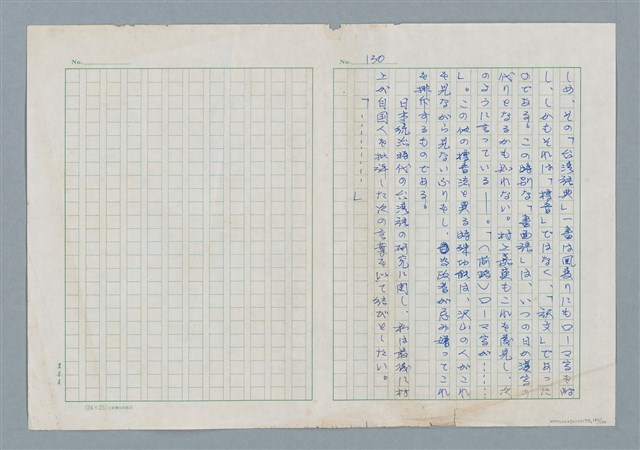 No. 130
しめ、その「台湾語典」一書は同憂りにもローマ字を除
し、しかもそれは「標音」ではなく、「訳文」であった
のである。この特別な「書面語」は、いつの日か漢字の
代りとなるかも知れない。村上嘉英もこれを発見し、次
のように言っている——。「(前略)ローマ字が……
」。この他の標音法と異る特殊功能は、沢山の人がこれ
を見ながら見ないふりをし、当政者が忌み嫌ってこれ
を排斥するものである。
日本統治時代の台湾語の研究に関し、私は最後に村
上が自国人を批評した次の言葉を以て結びとしたい。
「…………」
No.
(24×25)